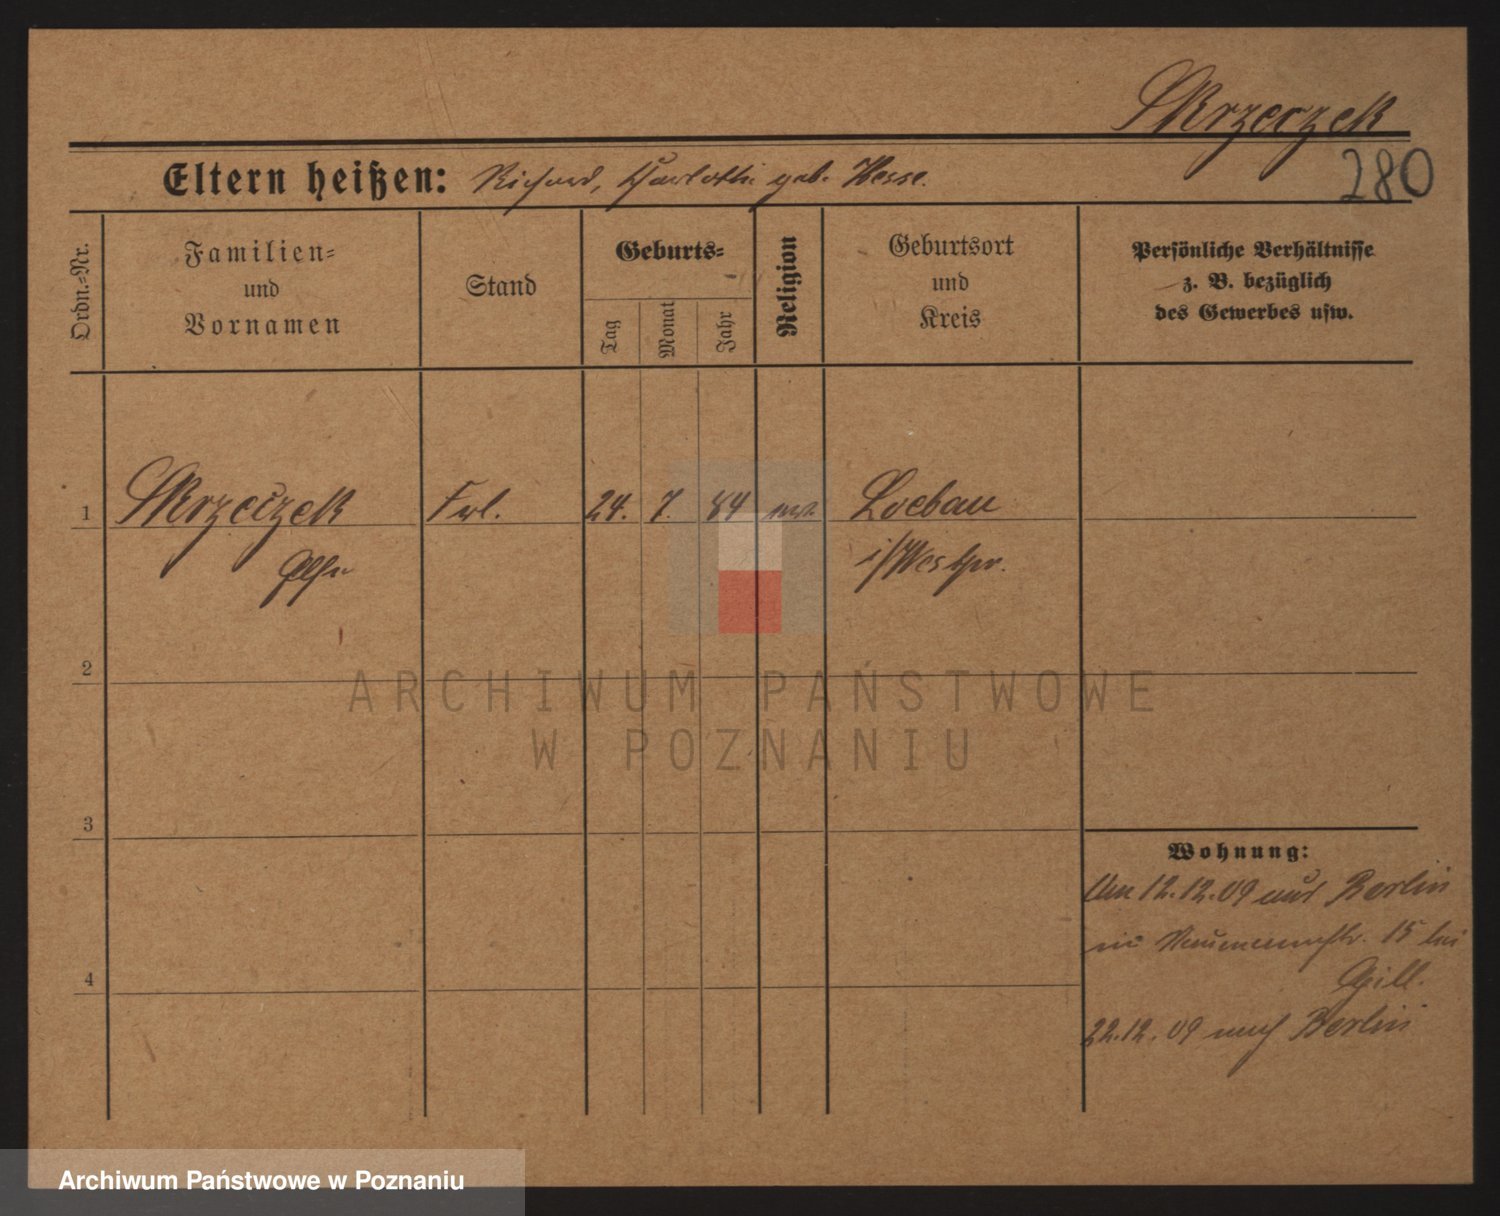 Skrzeczek
280
Eltern heißen: Richard, Charlotte geb. Hesse.
Ordn.-Nr.
Familien-
und
Vornamen
Stand
Geburts-
Tag
Monat
Jahr
Religion
Geburtsort
und
Kreis
Persönliche Verhältnisse
z. B. bezüglich
des Gewerbes usw.
1 Skrzeczek Frl. 24. 7. 84 Loebau
i/Westpr.
2
3
4
Wohnung:
Am 12.12.09 aus Berlin
in Naumannstr. 15 bei
Gill.
22.12.09 nach Berlin
ARCHIWUM PAŃSTWOWE
W POZNANIU
Archiwum Państwowe w Poznaniu